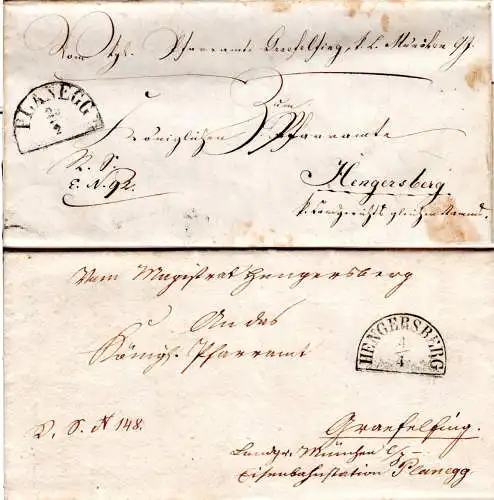 Vom kgl. Pfarramte Graefelfing k. L. München I/J.
PLANEGG
Zum
Königlichen Pfarramte
R. S.
E. N. 92.
Hengersberg
k. Landgerichts gleichen Namens.
Vom Magistrat Hengersberg
An das
Königl. Pfarramt
HENGERSBERG
4
4
R. S. N 148.
Graefelfing.
Landgr. München
Eisenbahnstation Planegg